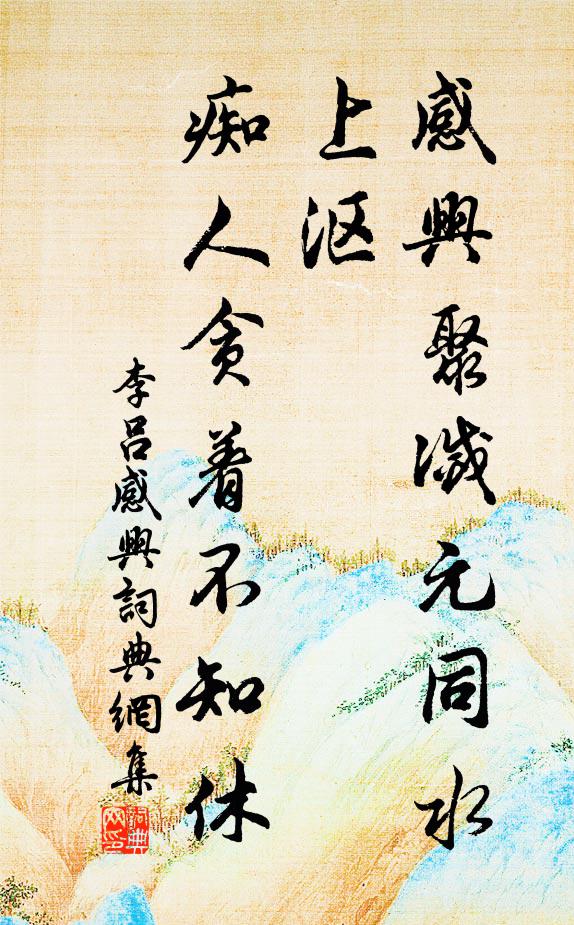 感興聚滅元同水
上沤
痴人贪着不知休
李吕感興詞典網集
詞典
网印